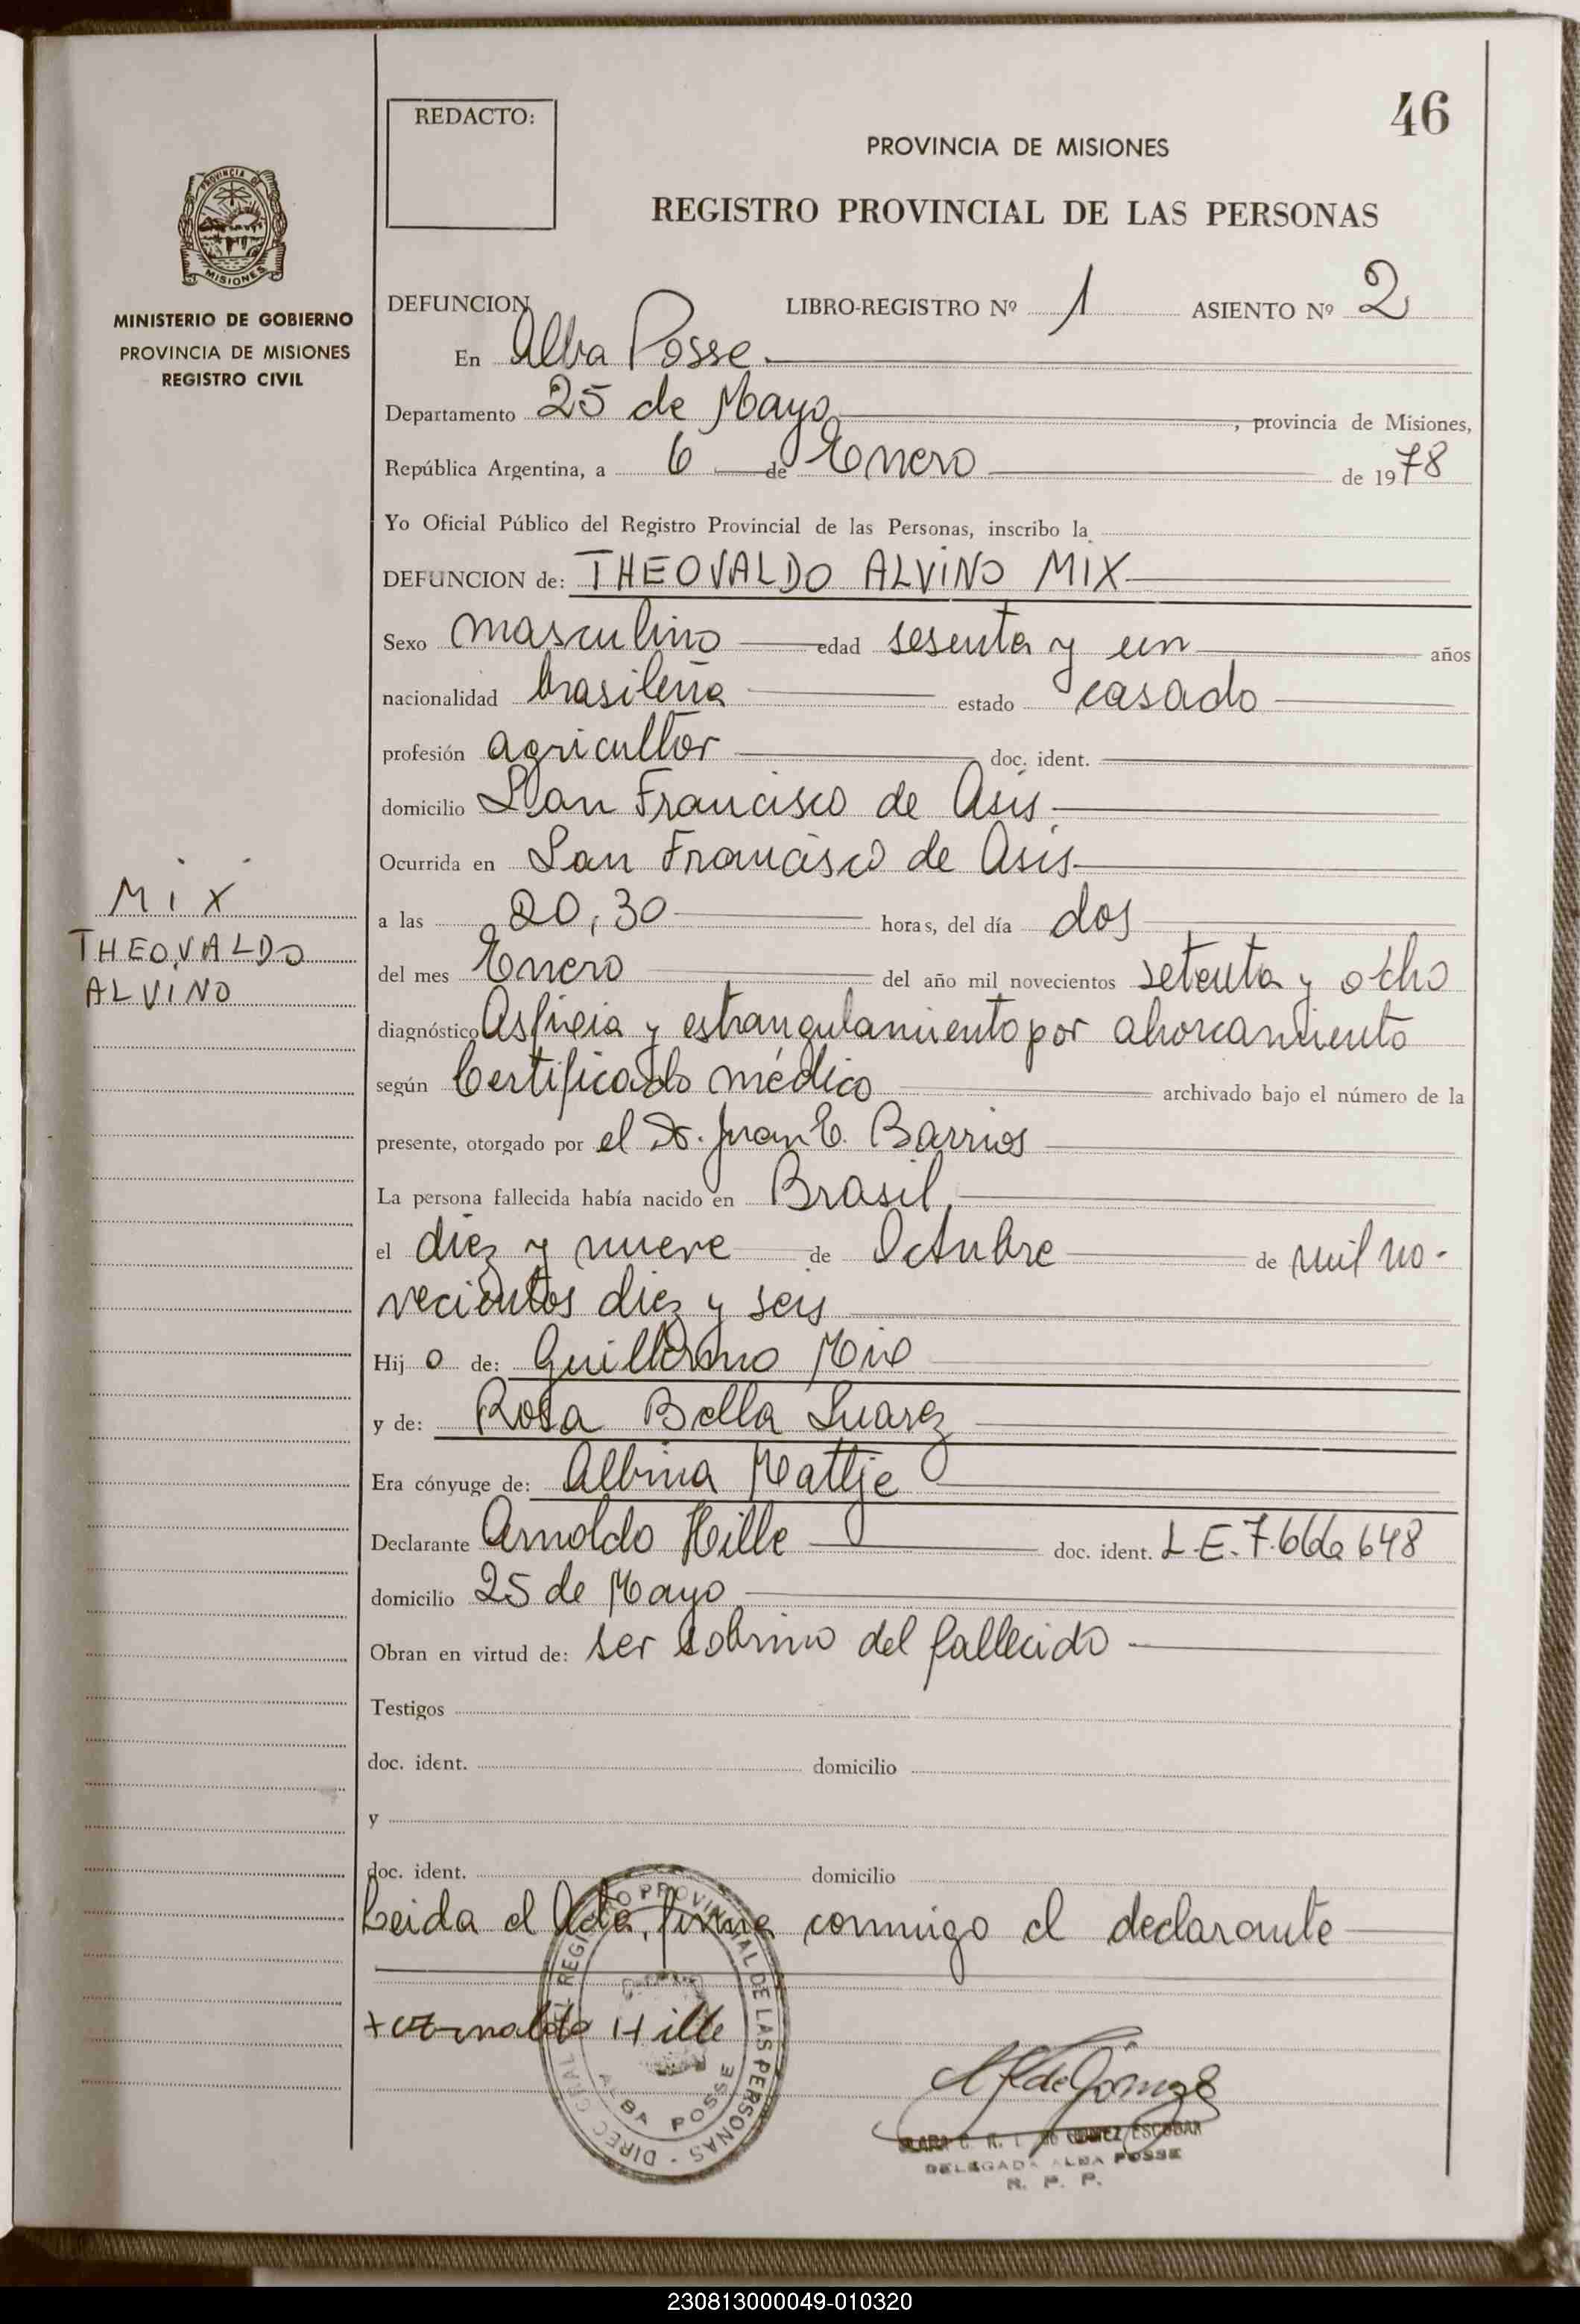 46
REDACTO:
PROVINCIA DE MISIONES
REGISTRO PROVINCIAL DE LAS PERSONAS
PROVINCIA DE
MISIONES
MINISTERIO DE GOBIERNO
PROVINCIA DE MISIONES
REGISTRO CIVIL
DEFUNCION LIBRO-REGISTRO Nº 1 ASIENTO Nº 2
En Alba Posse.
Departamento 25 de Mayo, provincia de Misiones,
República Argentina, a 6 de Enero de 1978
Yo Oficial Público del Registro Provincial de las Personas, inscribo la
DEFUNCION de: THEOVALDO ALVINO MIX
Sexo masculino edad sesenta y un años
nacionalidad brasileña estado casado
profesión agricultor doc. ident.
domicilio San Francisco de Asis
Ocurrida en San Francisco de Asis
MIX
THEOVALDO
ALVINO
a las 20,30 horas, del día dos
del mes Enero del año mil novecientos setenta y ocho
diagnóstico Asfixia y estrangulamiento por ahorcamiento
según Certificado médico archivado bajo el número de la
presente, otorgado por el Dr. Juan E. Barrios
La persona fallecida había nacido en Brasil,
el diez y nueve de Octubre de mil no-
vecientos diez y seis
Hijo de: Guillermo Mix
y de: Rosa Bella Suarez
Era cónyuge de: Albina Mattje
Declarante Arnoldo Hille doc. ident. L.E. 7.666 648
domicilio 25 de Mayo
Obran en virtud de: ser sobrino del fallecido
Testigos
doc. ident. domicilio
y
doc. ident. domicilio
Leida el Acta, firma conmigo el declarante
+ Arnoldo Hille
DIREC. GRAL. DEL REGISTRO PROVINCIAL DE LAS PERSONAS -
ALBA POSSE
CLARA C. R. DE GOMEZ ESCOBAR
DELEGADA ALBA POSSE
R. P. P.
230813000049-010320